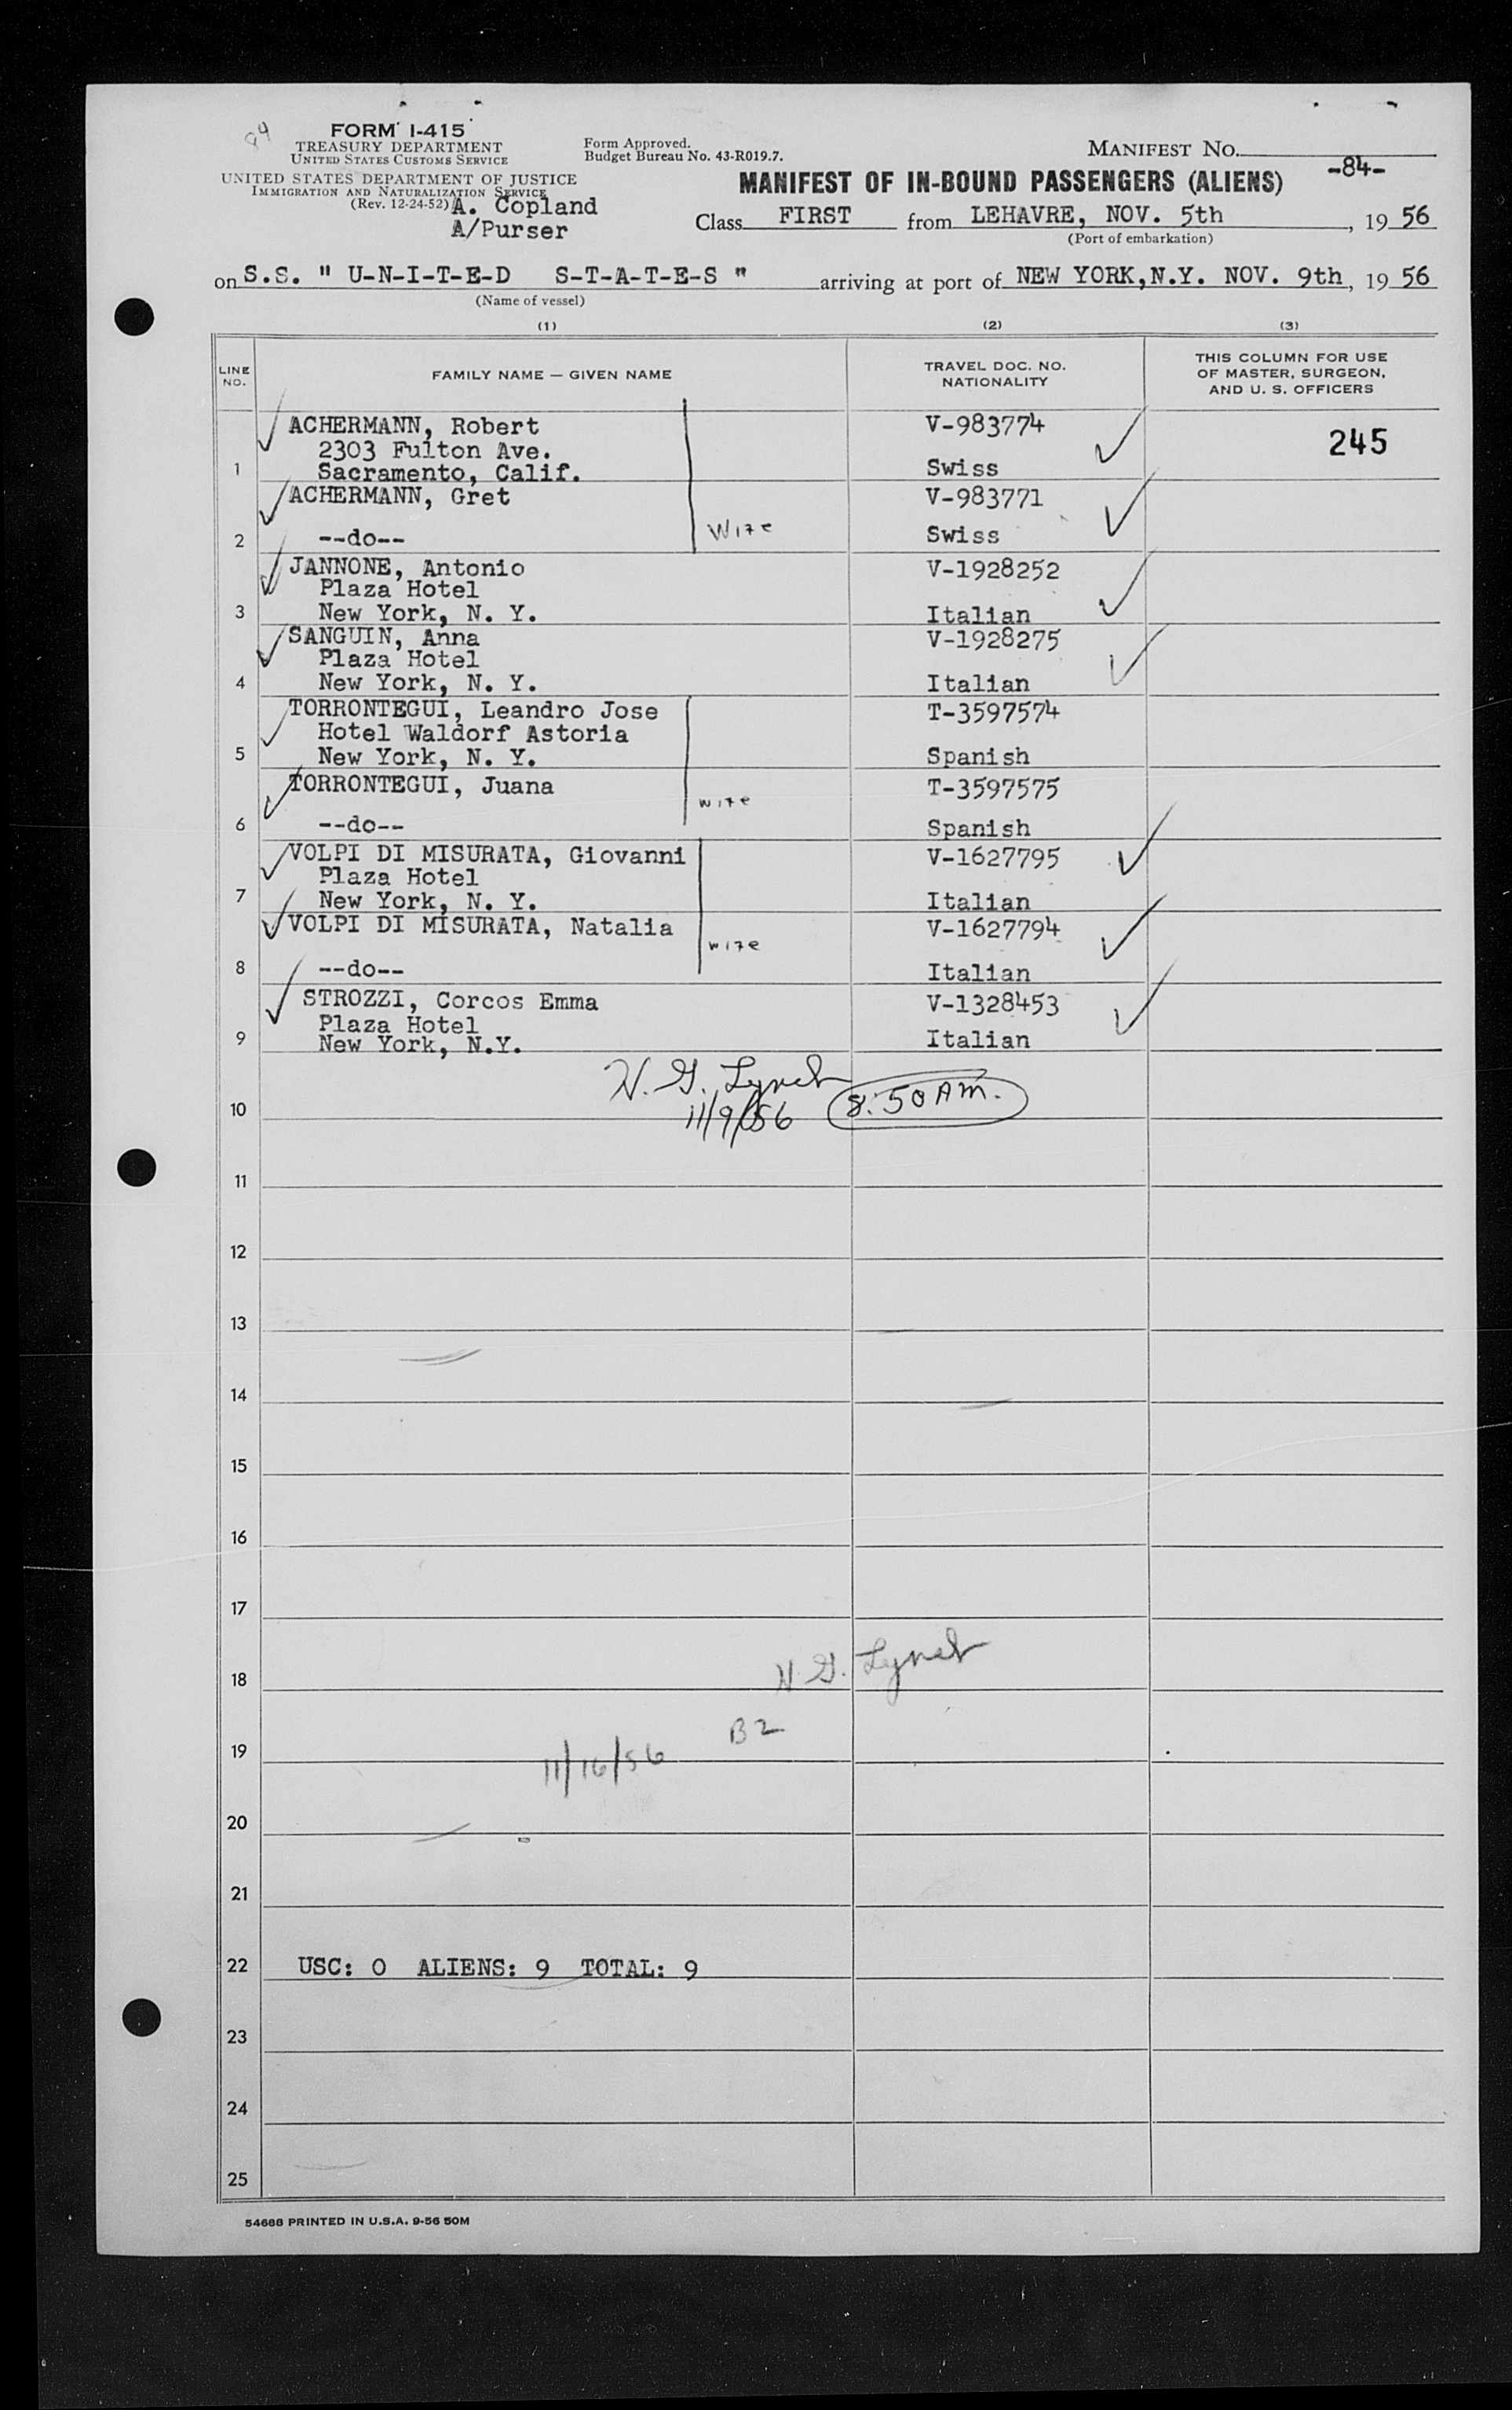 84
FORM I-415
TREASURY DEPARTMENT
UNITED STATES CUSTOMS SERVICE
UNITED STATES DEPARTMENT OF JUSTICE
IMMIGRATION AND NATURALIZATION SERVICE
(Rev. 12-24-52) A. Copland
A/Purser
Form Approved.
Budget Bureau No. 43-R019.7.
MANIFEST NO.
-84-
MANIFEST OF IN-BOUND PASSENGERS (ALIENS)
Class FIRST from LEHAVRE, NOV. 5th, 19 56
(Port of embarkation)
on S.S. " U-N-I-T-E-D S-T-A-T-E-S " arriving at port of NEW YORK,N.Y. NOV. 9th, 19 56
(Name of vessel)
(1) (2) (3)
LINE NO. FAMILY NAME — GIVEN NAME TRAVEL DOC. NO. NATIONALITY THIS COLUMN FOR USE OF MASTER, SURGEON, AND U. S. OFFICERS
ACHERMANN, Robert V-983774 245
2303 Fulton Ave.
1 Sacramento, Calif. Swiss
ACHERMANN, Gret V-983771
2 --do-- Wife Swiss
JANNONE, Antonio V-1928252
Plaza Hotel
3 New York, N. Y. Italian
SANGUIN, Anna V-1928275
Plaza Hotel
4 New York, N. Y. Italian
TORRONTEGUI, Leandro Jose T-3597574
Hotel Waldorf Astoria
5 New York, N. Y. Spanish
TORRONTEGUI, Juana T-3597575
wife
6 --do-- Spanish
VOLPI DI MISURATA, Giovanni V-1627795
Plaza Hotel
7 New York, N. Y. Italian
VOLPI DI MISURATA, Natalia V-1627794
wife
8 --do-- Italian
STROZZI, Corcos Emma V-1328453
Plaza Hotel
9 New York, N.Y. Italian
H. G. Lynch
10 11/9/56 8:50 AM.
11
12
13
14
15
16
17
18 H. G. Lynch
B2
19 11/16/56
20
21
22 USC: 0 ALIENS: 9 TOTAL: 9
23
24
25
54688 PRINTED IN U.S.A. 9-56 50M